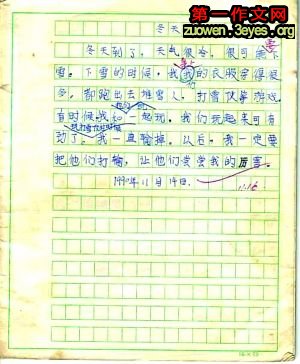 第一作文网
zuowen.3eyes.org
冬天
冬天到了，天气很冷，很可能下
雪。下雪的时候，我
多，都跑出去堆雪人，打雪仗等游戏。
有时候我和一起玩。我们玩起来可有
劲了。我一直输掉。以后，我一定要
把他们打输，让他们尝尝我的厉害。
1990年11月14日.
11.16